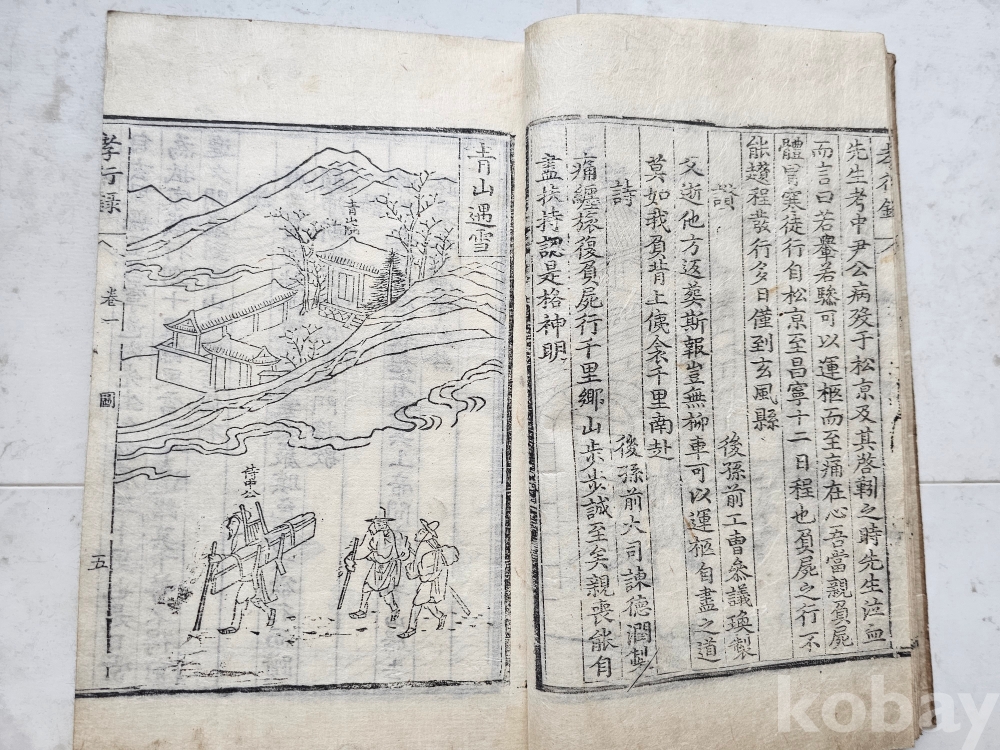 孝行錄
先生考中尹公病歿于松京及其啓靷之時先生泣血
而言曰若轝若驂可以運柩而至痛在心吾當親負屍
體冒寒徒行自松京至昌寧十二日程也負屍之行不
能趲程發行多日僅到玄風縣
讚
後孫前工曹參議瑍製
父逝他方返葬斯報豈無柳車可以運柩自盡之道
莫如我負背上使衾千里南赴
詩
後孫前大司諫德潤製
痛纏旅復負屍行千里鄉山步步誠至矣親喪能自
盡扶持認是格神明
靑山遇雪
孝行錄
卷一
圖
五
kobay